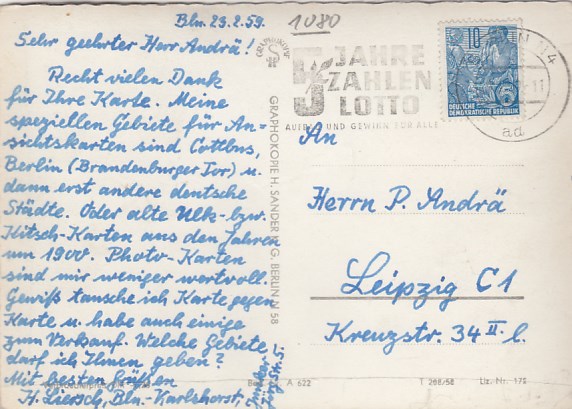 Bln. 23.2.59.
1080
Sehr geehrter Herr Andrä!
Recht vielen Dank
für Ihre Karte. Meine
speziellen Gebiete für An-
sichtskarten sind Cottbus,
Berlin (Brandenburger Tor) u.
dann erst andere deutsche
Städte. Oder alte Ulk- bzw.
Kitsch-Karten aus den Jahren
um 1900. Photo-Karten
sind mir weniger wertvoll.
Gewiß tausche ich Karte gegen
Karte u. habe auch einige
zum Verkauf. Welche Gebiete
darf ich Ihnen geben?
Mit besten Grüßen
H. Liersch, Bln.-Karlshorst,
Str. 5.
GRAPHOKOPIE H. SANDER K G. BERLIN N 58
5 JAHRE
ZAHLEN
LOTTO
AUFBAU UND GEWINN FÜR ALLE
10
5
DEUTSCHE
DEMOKRATISCHE REPUBLIK
N 4
11
ad
An
Herrn P. Andrä
Leipzig C1
Kreuzstr. 34 II l.
A 622
T 288/58
Liz. Nr. 175